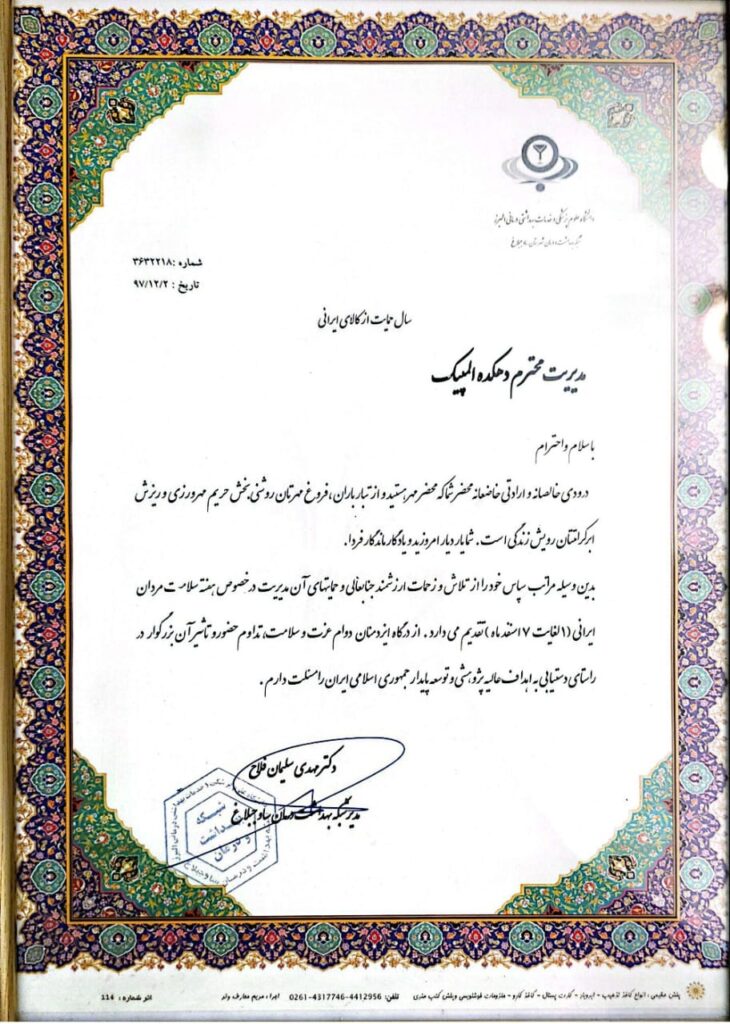 دانشگاه علوم پزشکی و خدمات بهداشتی درمانی البرز
شبکه بهداشت و درمان شهرستان ساوجبلاغ
شماره :۳۶۳۲۲۱۸
تاریخ : ۹۷/۱۲/۲
سال حمایت از کالای ایرانی
مدیریت محترم دهکده المپیک
با سلام و احترام
درودی خالصانه و ارادتی خاضعانه محضر شما که محضر مهر هستید و از تبار باران ، فروغ مهرتان روشنی بخش حریم مهرورزی و ریزش
ابر کرامتتان رویش زندگی است . شما یار دیار امروزید و یادگار ماندگار فردا.
بدین وسیله مراتب سپاس خود را از تلاش و زحمات ارزشمند جنابعالی و حمایتهای آن مدیریت در خصوص هفته سلامت مردان
ایرانی (۱ لغایت ۷ اسفند ماه ) تقدیم می دارد . از درگاه ایزد منان دوام عزت و سلامت، تداوم حضور و تاثیر آن بزرگوار در
راستای دستیابی به اهداف عالیه پژوهشی و توسعه پایدار جمهوری اسلامی ایران را مسئلت دارم .
دکتر مهدی سلیمان فلاح
مدیر شبکه بهداشت و درمان ساوجبلاغ
شبکه
بهداشت
و درمان
پخش مقیمی : انواع کاغذ تذهیب - ابروباد - کارت پستال - کاغذ کادو - ملزومات خوشنویسی و پخش کتب هنری تلفن: 4412956-4317746-0261 اجرا: مریم معارف وند
اثر شماره : 114